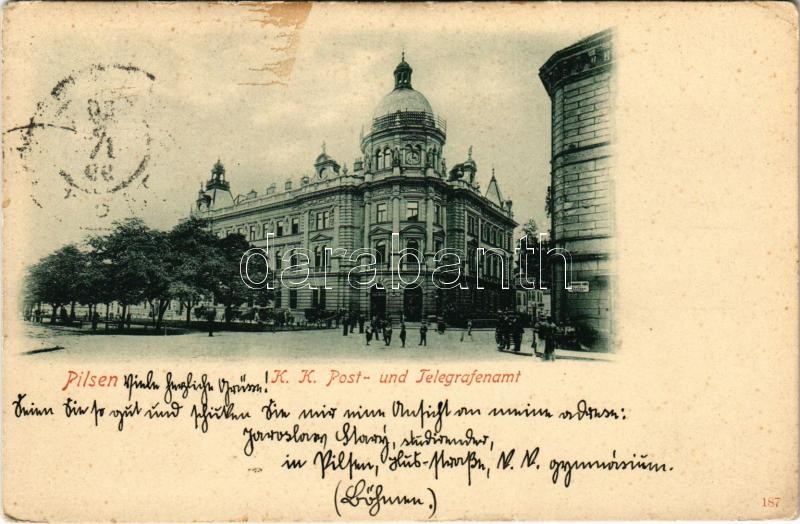 darabanth
Pilsen Viele herzliche Grüsse! K. K. Post- und Telegrafenamt
Seien Sie so gut und schicken Sie mir eine Ansicht an meine adresse:
Jaroslav Starý, studirender,
in Pilsen, Hus-straße, K. K. gymnásium.
(Böhmen.)
187